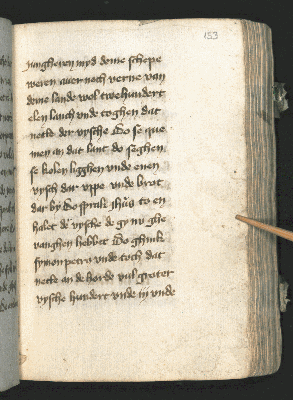 153
vangheven myd deme schepe
weren auer noch verne van
deme lande wol twehundert
elen lanch vnde toghen dat
nette der vyssche Do se que
men an dat lant do seghen
se kolen ligghen vnde enen
vysch dar vppe vnde brot
dar by Do sprak ihūs to en
halet de vyssche de gy nu ghe
vanghen hebbet Do ghink
symon petrus vnde toch dat
nette an de erde vul groter
vyssche hundert vnde in vnde